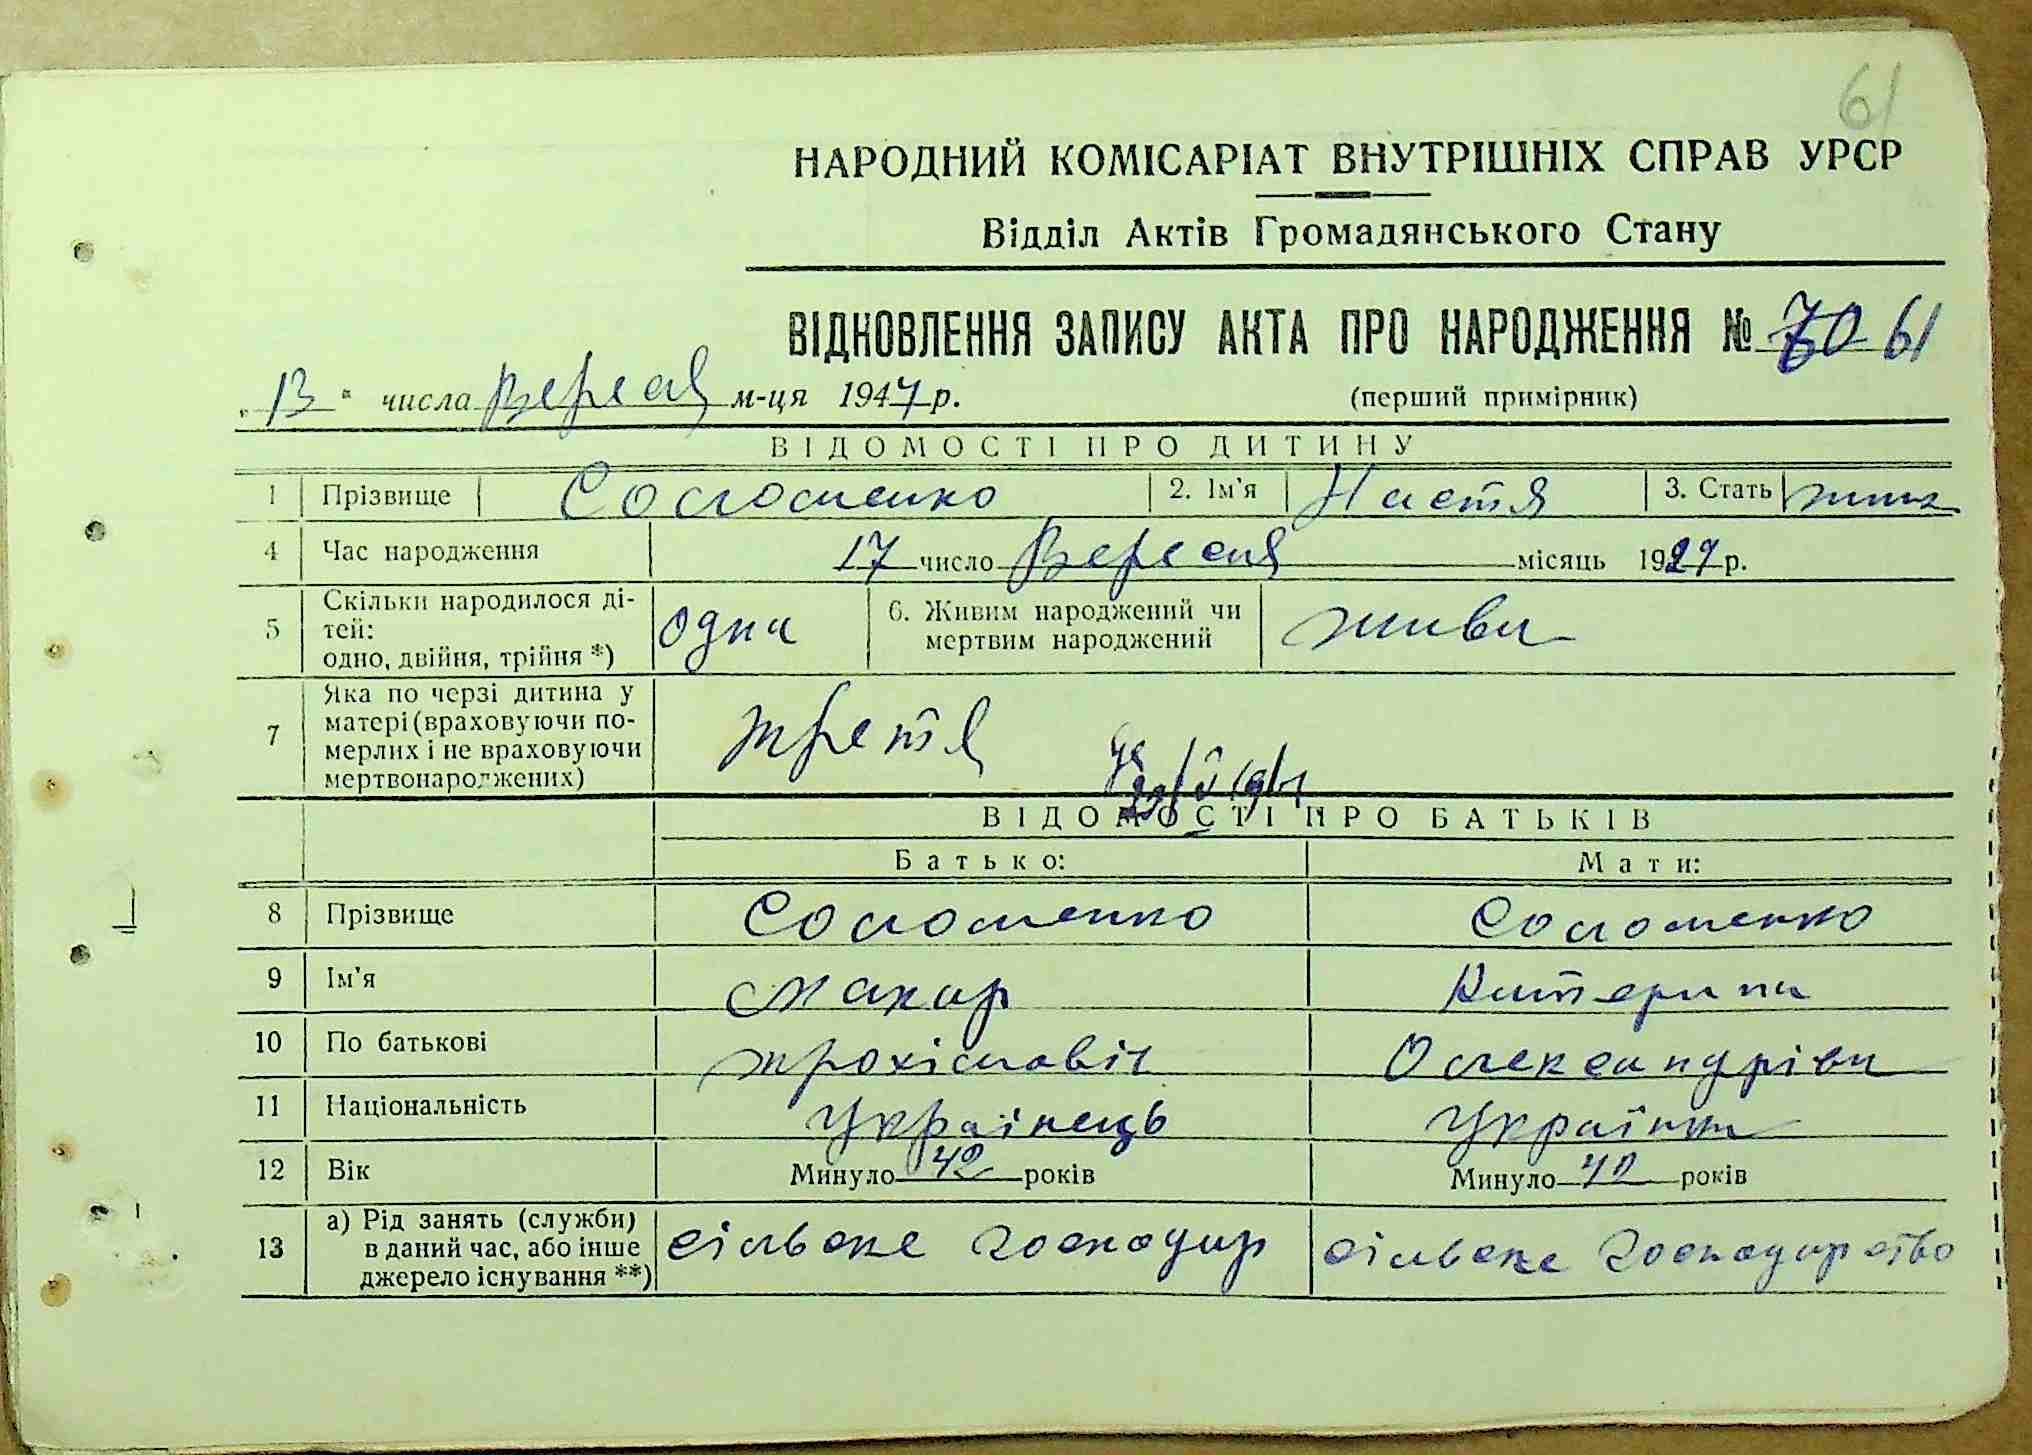 61
НАРОДНИЙ КОМІСАРІАТ ВНУТРІШНІХ СПРАВ УРСР
Відділ Актів Громадянського Стану
ВІДНОВЛЕННЯ ЗАПИСУ АКТА ПРО НАРОДЖЕННЯ № 61
„13“ числа Вересня м-ця 1947 р. (перший примірник)
ВІДОМОСТІ ПРО ДИТИНУ
1 Прізвище Соломенко 2. Ім'я Настя 3. Стать
4 Час народження 17 число Вересня місяць 1927 р.
5 Скільки народилося ді-
тей:
одно, двійня, трійня *) одна 6. Живим народжений чи
мертвим народжений жива
7 Яка по черзі дитина у
матері (враховуючи по-
мерлих і не враховуючи
мертвонароджених) третя
ВІДОМОСТІ ПРО БАТЬКІВ
Батько: Мати:
8 Прізвище Соломенко Соломенко
9 Ім'я Макар Катерина
10 По батькові Трохімовіч Олександрівна
11 Національність Українець Українка
12 Вік Минуло 42 років Минуло 42 років
13 а) Рід занять (служби)
в даний час, або інше
джерело існування **) сільске господар сільске господарство